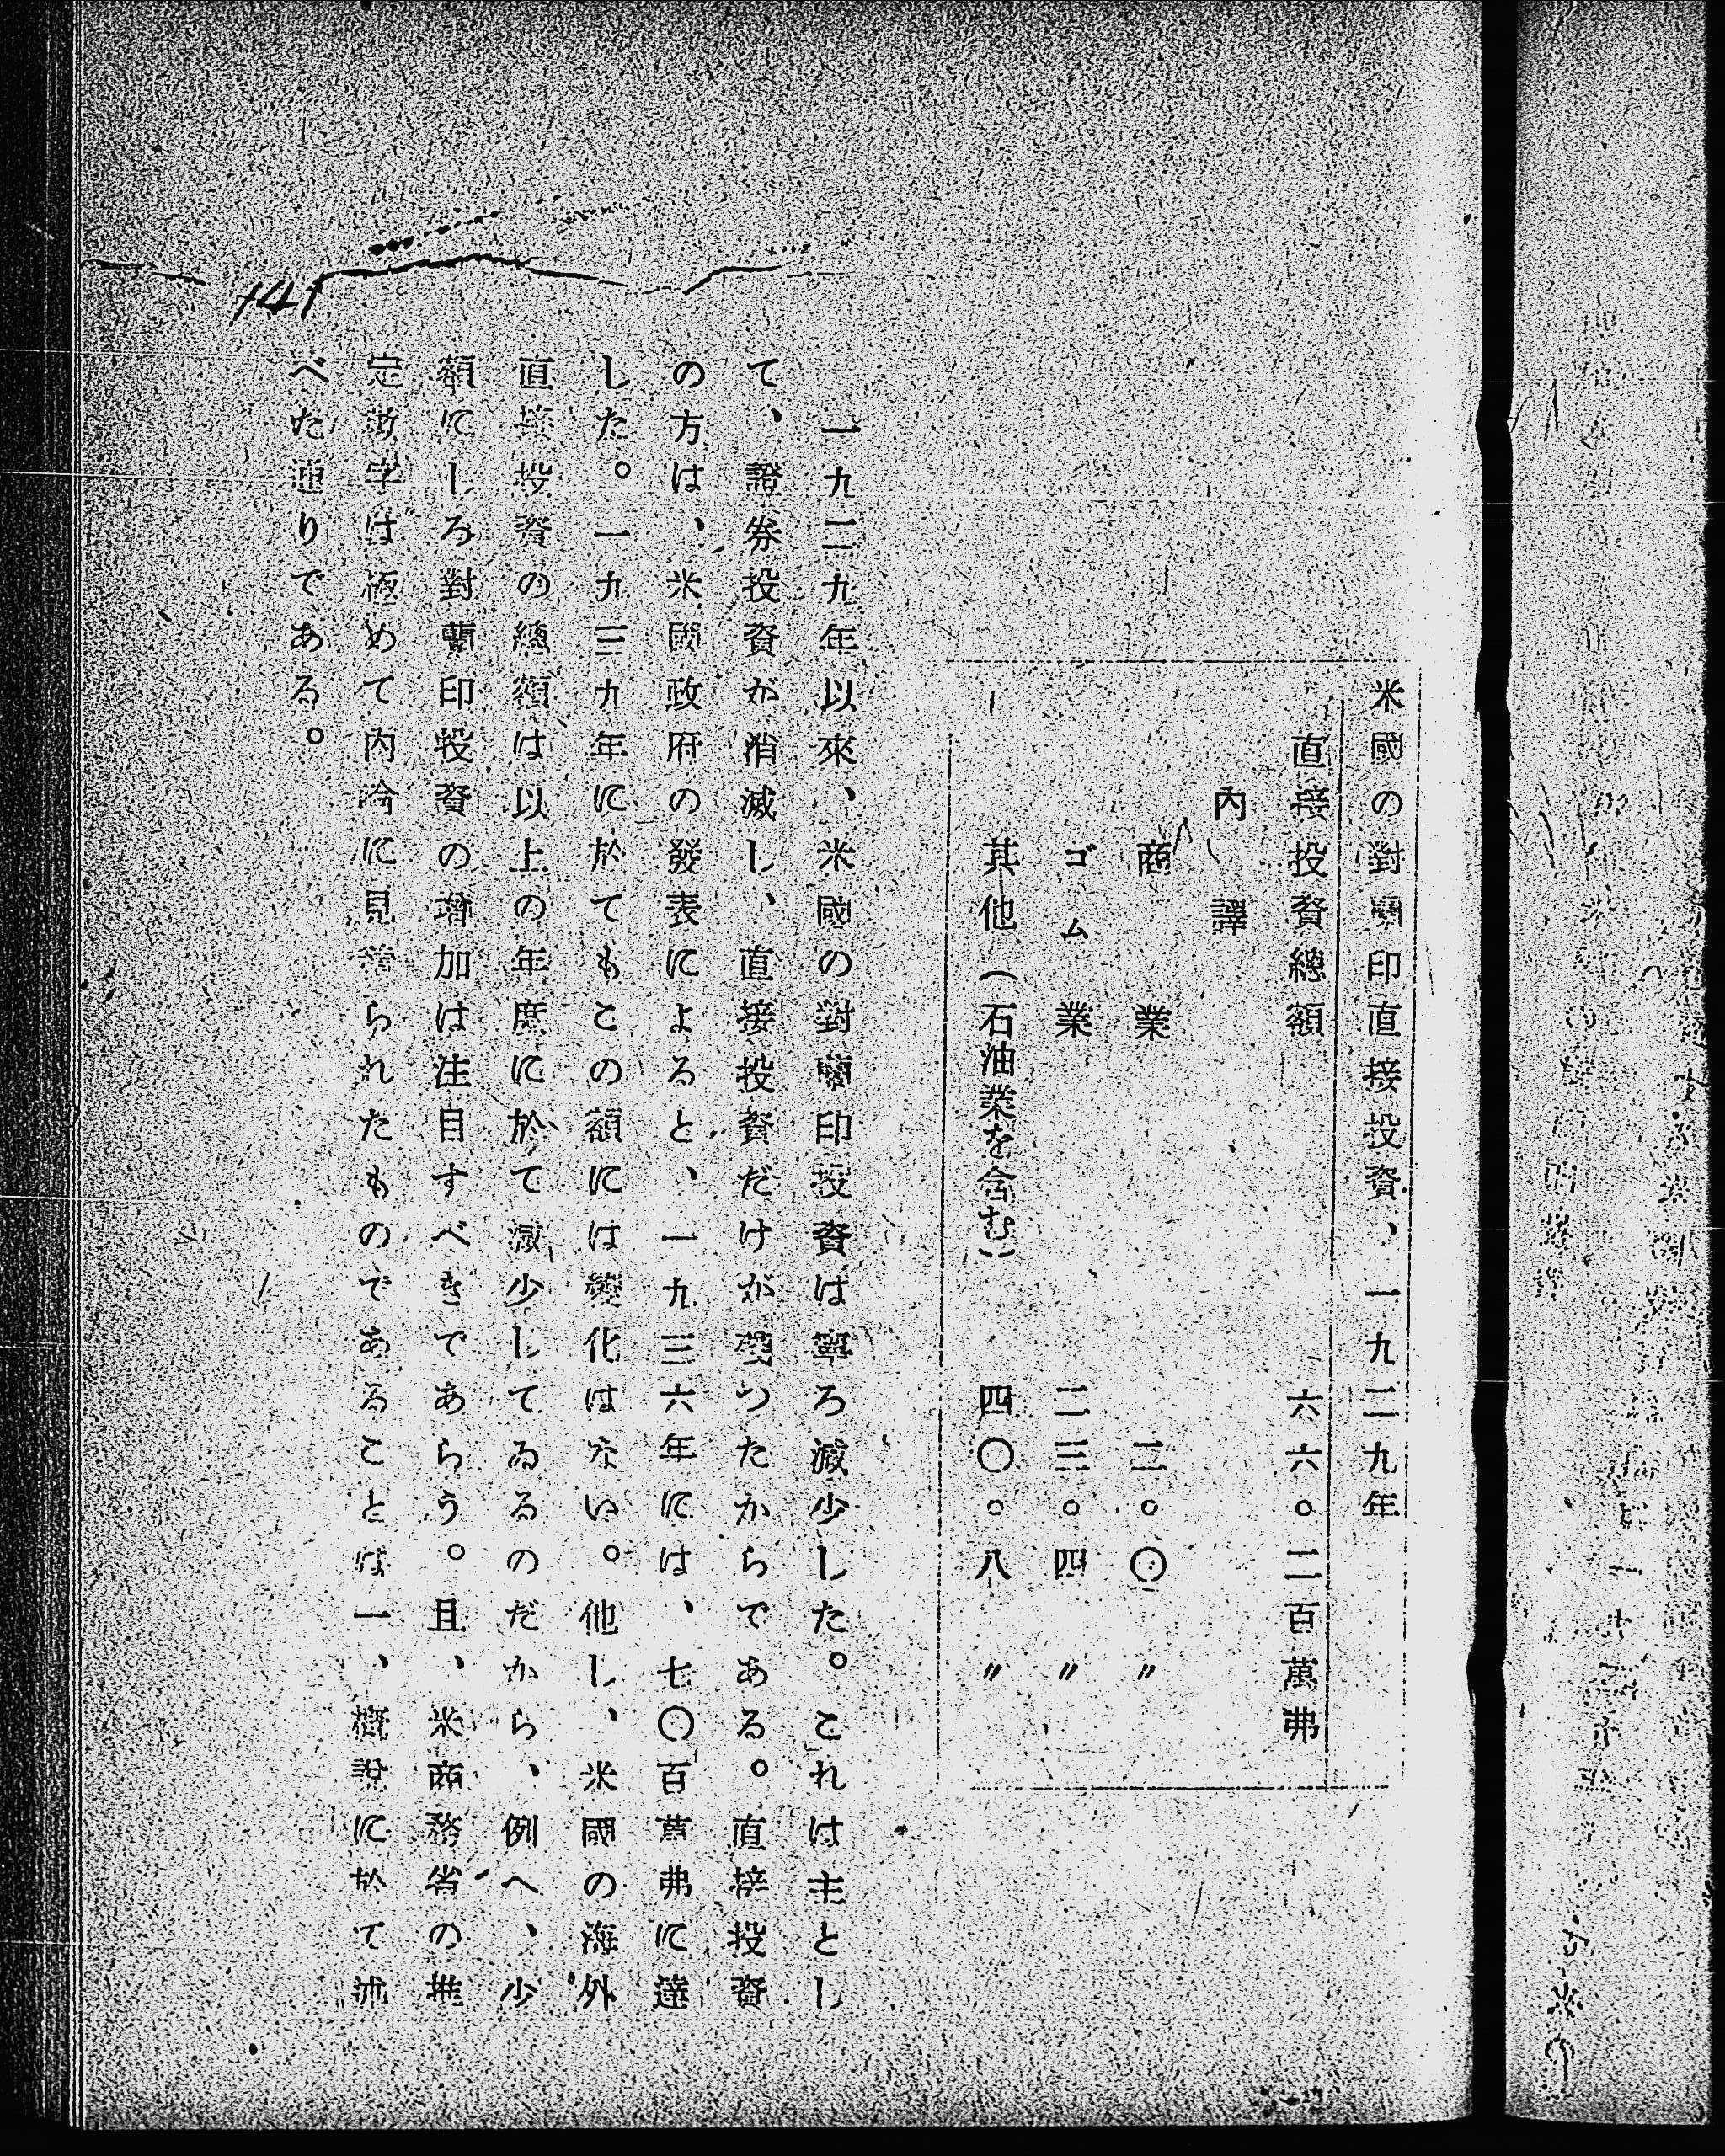 米國の對蘭印直接投資、一九二九年
直接投資總額　六六。二百萬弗
內譯
商業　二。〇〃
ゴム業　二三。四〃
其他（石油業を含む）　四〇。八〃
一九二九年以來、米國の對蘭印投資は寧ろ減少した。これは主とし
て、證券投資が消滅し、直接投資だけが殘つたからである。直接投資
の方は、米國政府の發表によると、一九三六年には、七〇百萬弗に達
した。一九三九年に於てもこの額には變化は次い。他し、米國の海外
直接投資の總額は以上の年度に於て減少してゐるのだから、例へ、少
額にしろ對蘭印投資の增加は注目すべきであらう。且、米商務省の推
定數字は極めて內今に見積られたものであることは一、槪說に於て述
べた通りである。
141